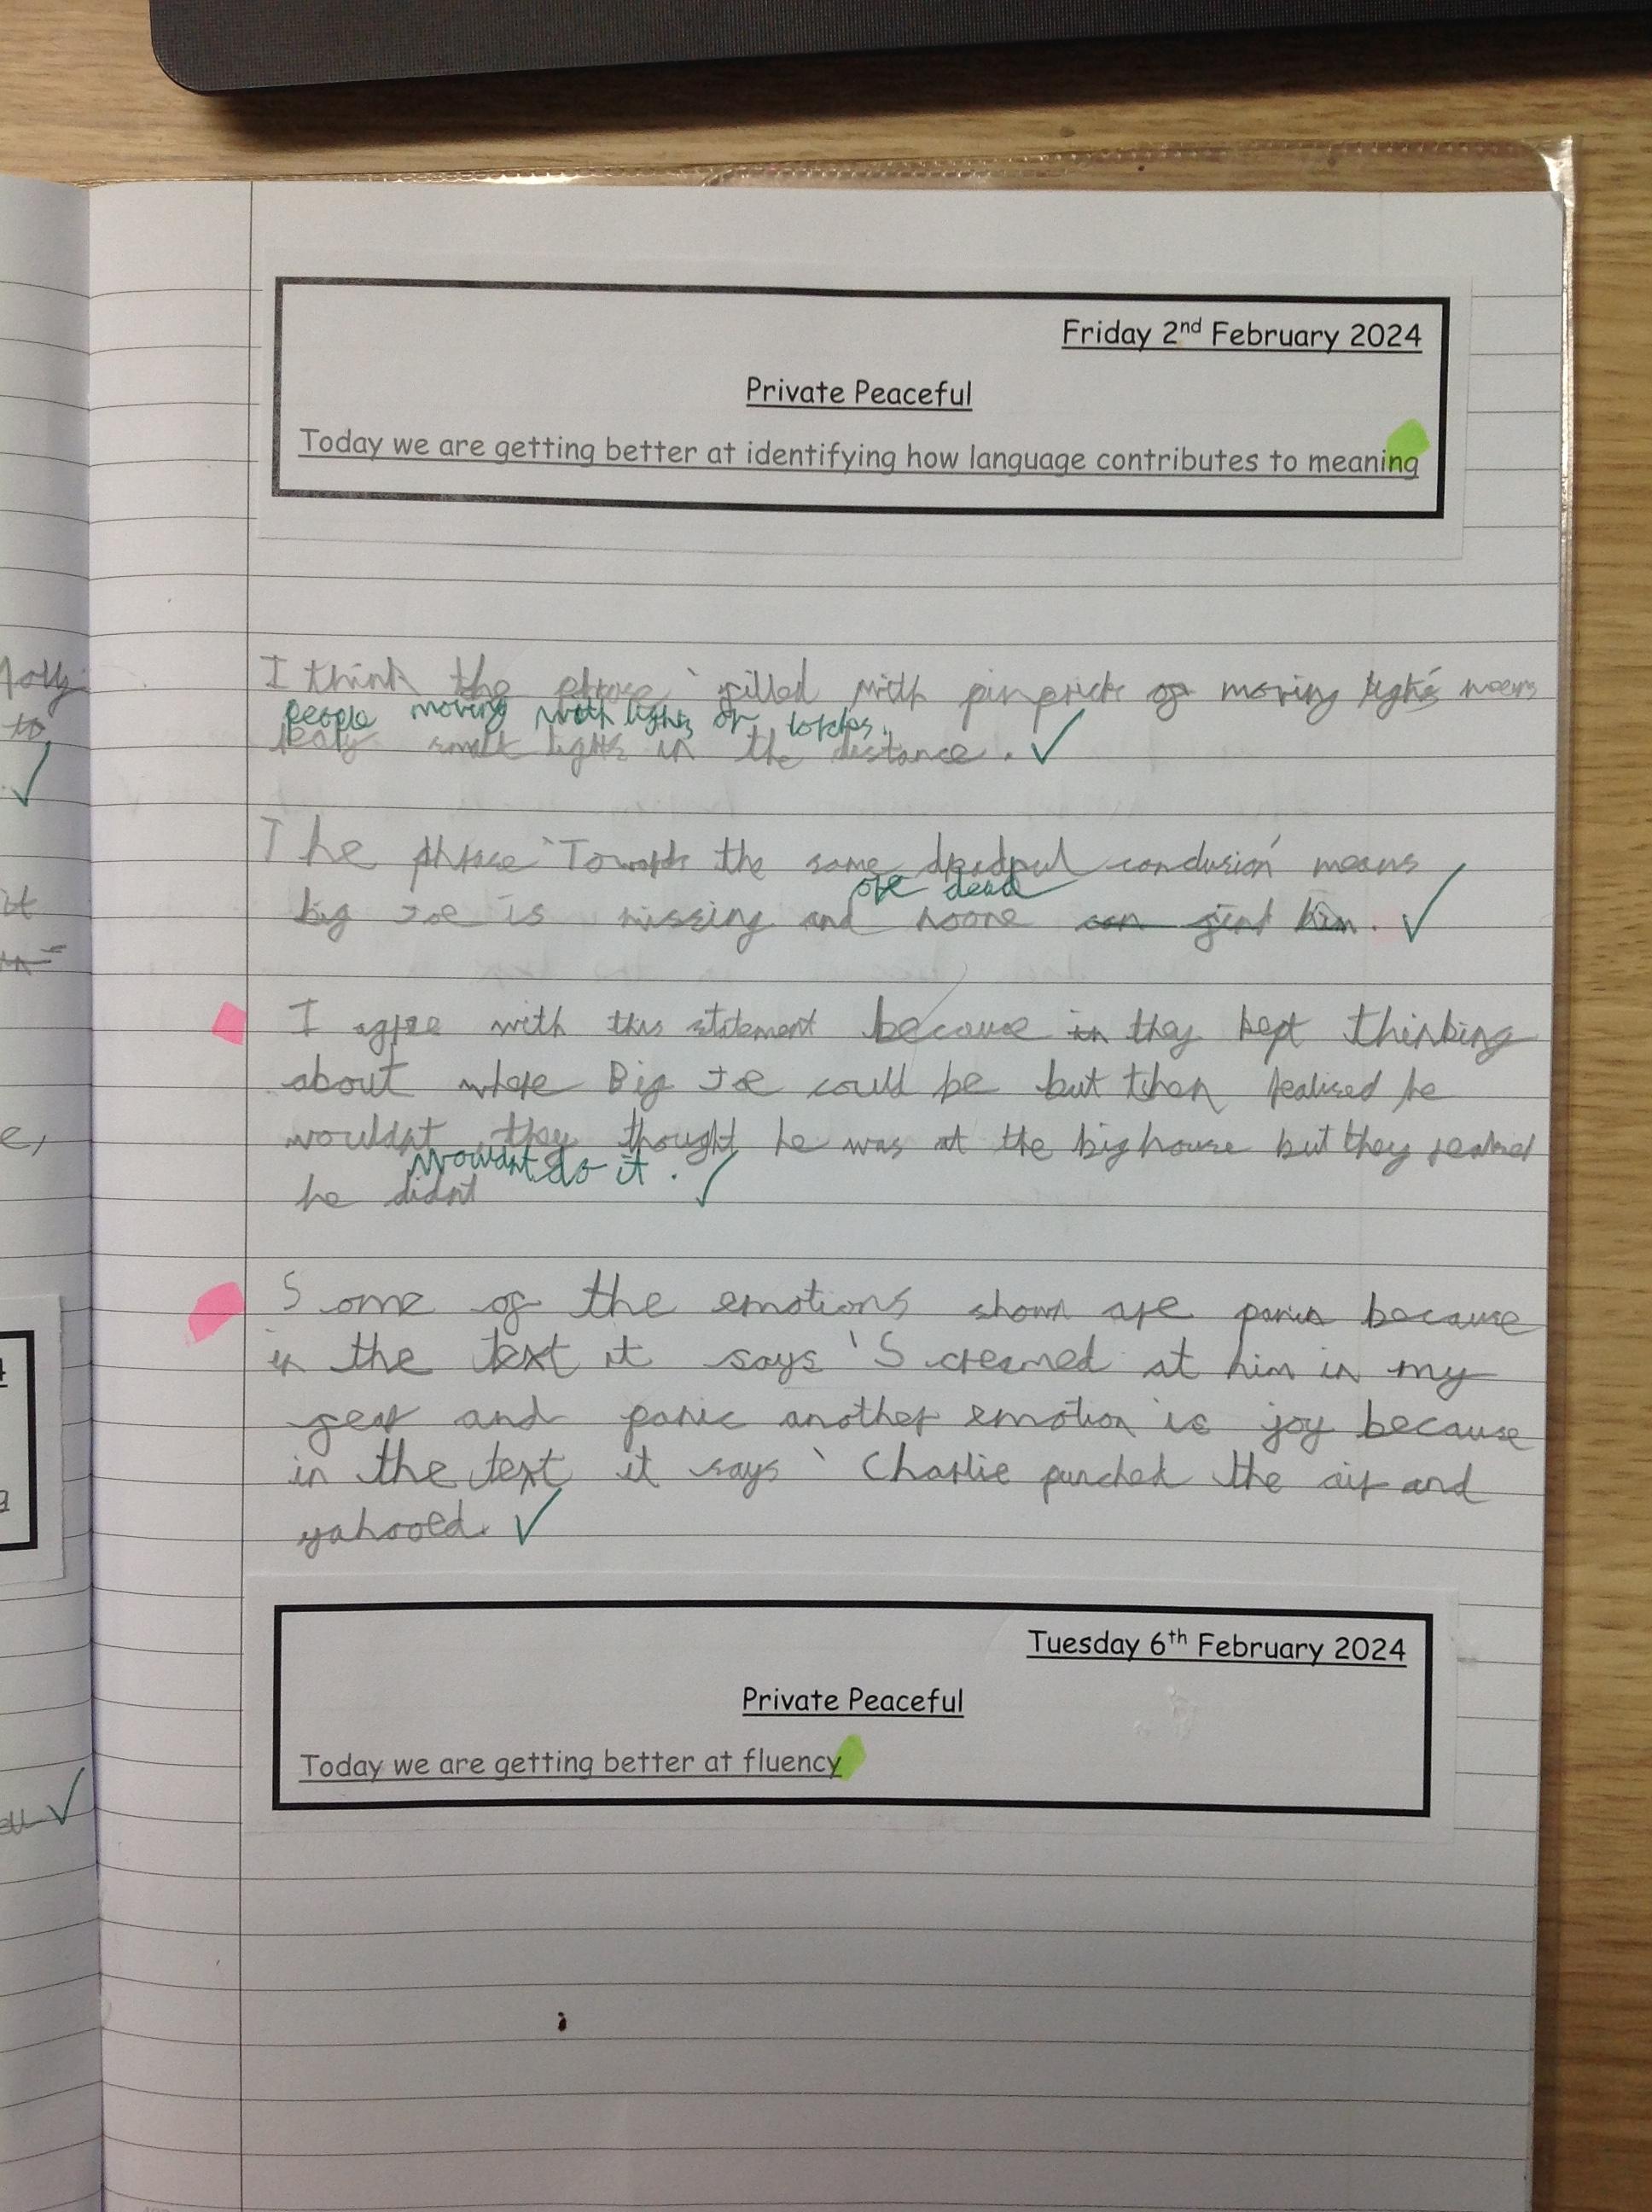 Friday 2nd February 2024
Private Peaceful
Today we are getting better at identifying how language contributes to meaning
I think the phrase 'filled with pinprick of moving lights' means
people moving with lights or torches.
realy small lights in the distance.
The phrase 'Towards the same dreadful conclusion' means
or dead
big Joe is missing and noone can find him.
I agree with this statement because in they kept thinking
about where Big Joe could be but then realised he
wouldnt they thought he was at the big house but they realised
wouldnt do it.
he didnt
Some of the emotions shown are panic because
in the text it says 'Screamed at him in my
fear and panic another emotion is joy because
in the text it says 'Charlie punched the air and
yahooed.
Tuesday 6th February 2024
Private Peaceful
Today we are getting better at fluency